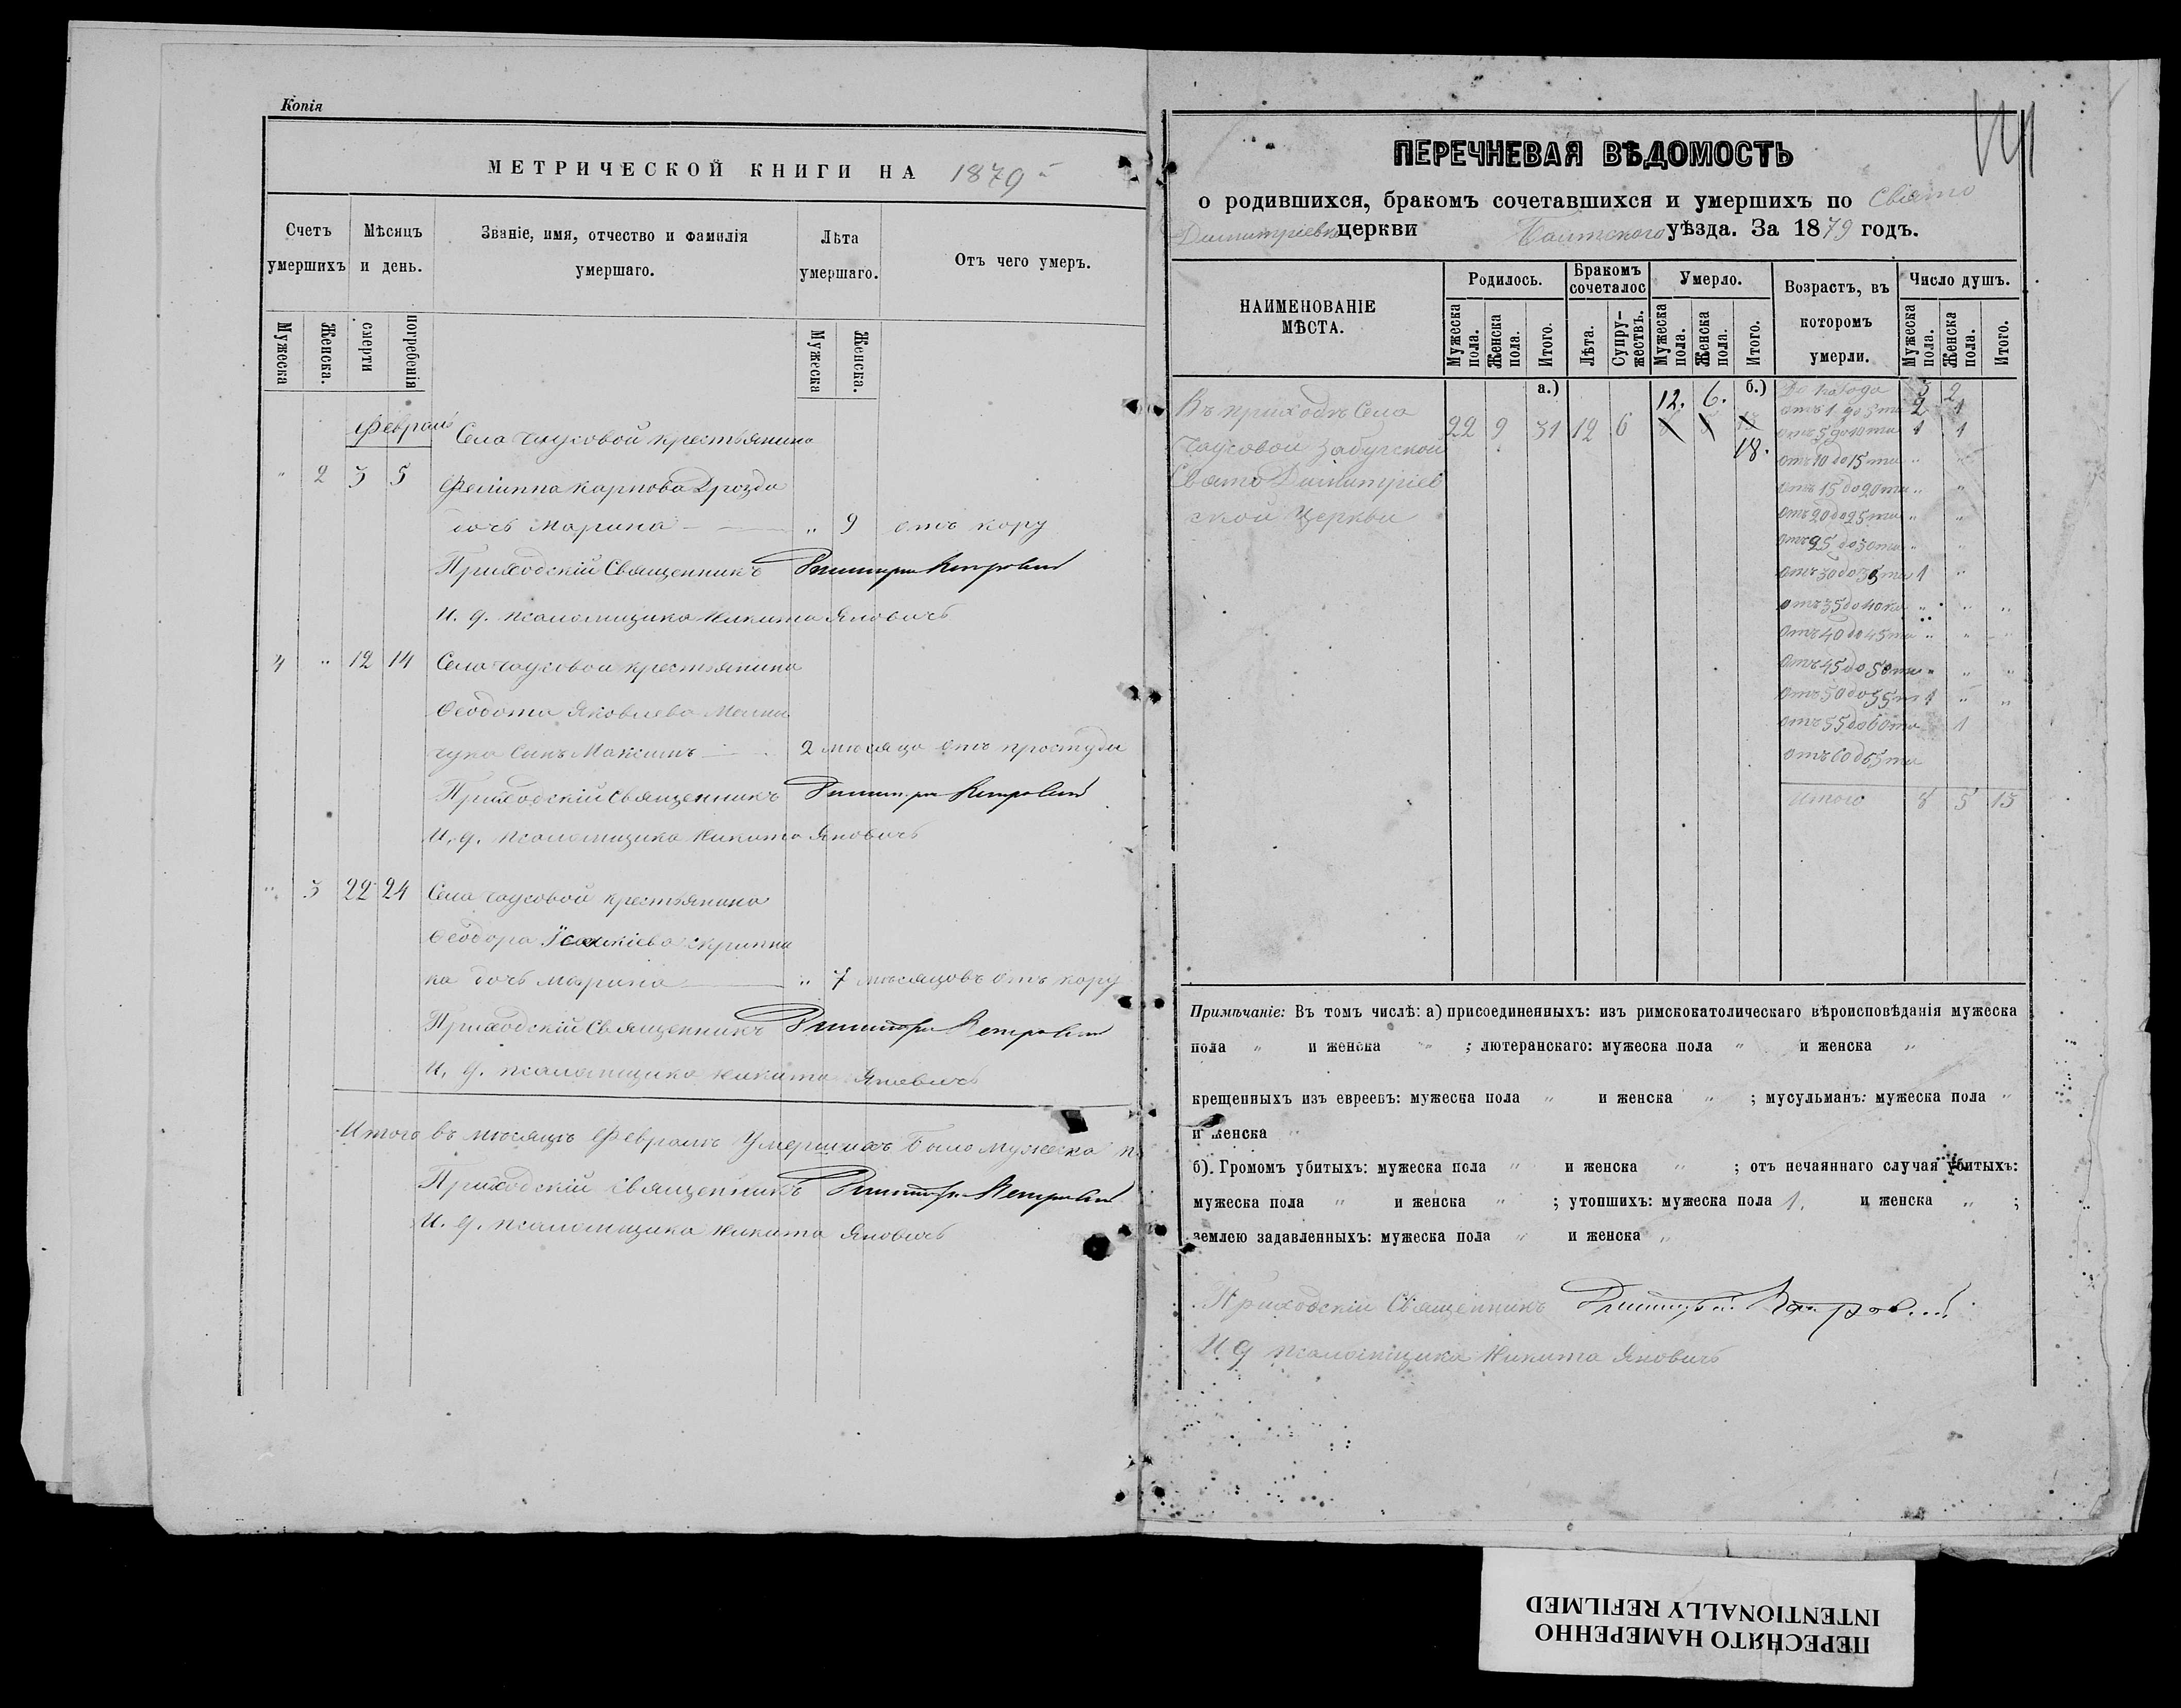 Копія
МЕТРИЧЕСКОЙ КНИГИ НА 1879
Счетъ умершихъ
Мѣсяцъ и день.
Званіе, имя, отчество и фамилія умершаго.
Лѣта умершаго.
Отъ чего умеръ.
Мужеска
Женска.
смерти
погребенія
Мужеска
Женска.
Февраль
Села Чаусовой крестьянина
" 2 3 5 Филиппа Карпова Дрозда
дочь Марина — " 9 отъ кору
Приходскій Священникъ
И. д. псаломщика Никита Яновичъ
4 " 12 14 Села Чаусовой крестьянина
Ѳеодота Яковлева
чука сынъ Максимъ — 2 мѣсяца отъ простуды
Приходскій Священникъ
И. д. псаломщика Никита Яновичъ
" 3 22 24 Села Чаусовой крестьянина
Ѳеодора
ка дочь Марина — " 7 мѣсяцовъ отъ кору
Приходскій Священникъ
И. д. псаломщика Никита Яновичъ
Итого въ мѣсяцѣ Февралѣ Умершихъ было мужеска п.
Приходскій Священникъ
И. д. псаломщика Никита Яновичъ
ПЕРЕЧНЕВАЯ ВѢДОМОСТЬ
о родившихся, бракомъ сочетавшихся и умершихъ по Свято
Димитріевской церкви Балтского уѣзда. За 1879 годъ.
НАИМЕНОВАНІЕ МѢСТА.
Родилось.
Бракомъ сочеталос
Умерло.
Возрастъ, въ которомъ умерли.
Число душъ.
Мужеска пола.
Женска пола.
Итого.
Лѣта.
Супружествъ.
Мужеска пола.
Женска пола.
Итого.
Мужеска пола.
Женска пола.
Итого.
а.)
б.)
Въ приходѣ Села
Чаусовой Забугской
Свято Димитріев
ской Церкви
22 9 31 12 6
12. 6.
18.
До 1 года 3 2
отъ 1 до 5ти 2 1
отъ 5 до 10ти 1 1
отъ 10 до 15ти " "
отъ 15 до 20ти " "
отъ 20 до 25ти " "
отъ 25 до 30ти " "
отъ 30 до 35ти 1 "
отъ 35 до 40ка " " "
отъ 40 до 45ти " " "
отъ 45 до 50ти " " "
отъ 50 до 55ти 1 " "
отъ 55 до 60ти 1
отъ 60 до 65ти
Итого 8 5 13
Примѣчаніе: Въ томъ числѣ: а) присоединенныхъ: изъ римскокатолическаго вѣроисповѣданія мужеска
пола " и женска " ; лютеранскаго: мужеска пола " и женска "
крещенныхъ изъ евреевъ: мужеска пола " и женска " ; мусульманъ: мужеска пола "
и женска "
б). Громомъ убитыхъ: мужеска пола " и женска " ; отъ нечаяннаго случая убитыхъ:
мужеска пола " и женска " ; утопшихъ: мужеска пола 1. и женска " ;
землею задавленныхъ: мужеска пола " и женска "
Приходскій Священникъ
И д псаломщика Никита Яновичъ
ПЕРЕСНЯТО НАМЕРЕННО
INTENTIONALLY REFILMED